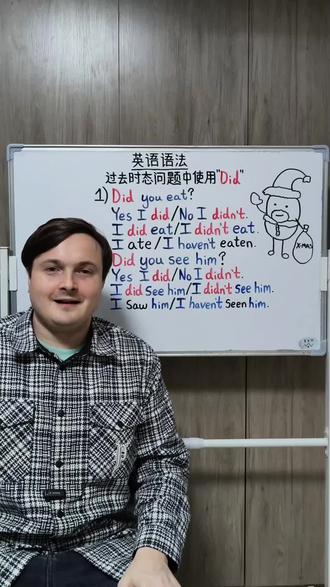 英语语法
过去时态问题中使用"Did"
1) Did you eat?
Yes I did/No I didn't.
I did eat/I didn't eat.
I ate/I haven't eaten.
Did you see him?
Yes I did/No I didn't.
I did see him/I didn't see him.
I saw him/I haven't seen him.
X-MAS